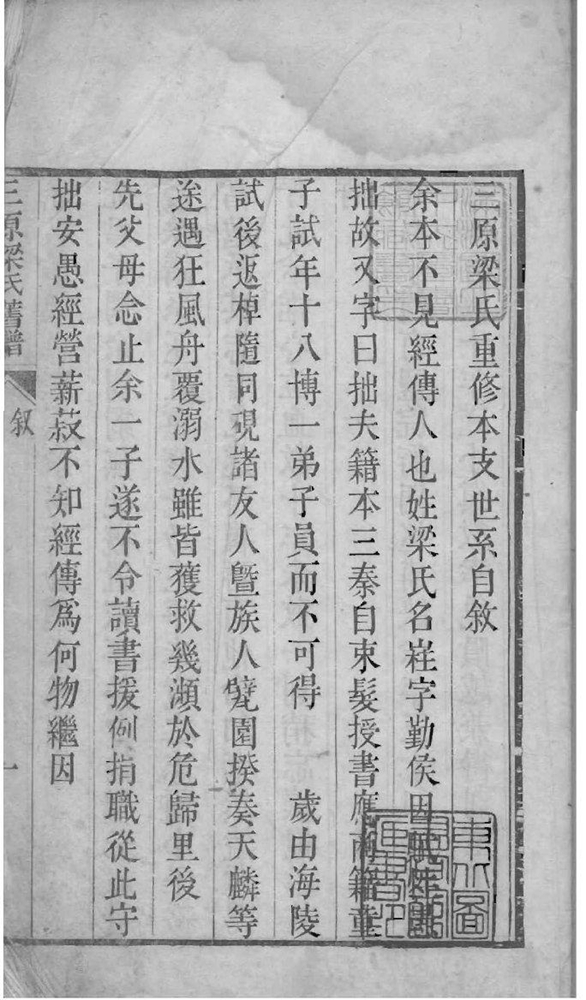 三原梁氏重修本支世系自敘
余本不見經傳人也姓梁氏名嵀字勤侯因賦性
拙故又字曰拙夫籍本三秦自束髮授書應商籍童
子試年十八博一弟子員而不可得　歲由海陵
試後返棹隨同硯諸友人暨族人甓園揆奏天麟等
途遇狂風舟覆溺水雖皆獲救幾瀕於危歸里後
先父母念止余一子遂不令讀書援例捐職從此守
拙安愚經營薪菽不知經傳為何物繼因
三原梁氏舊譜
叙
一